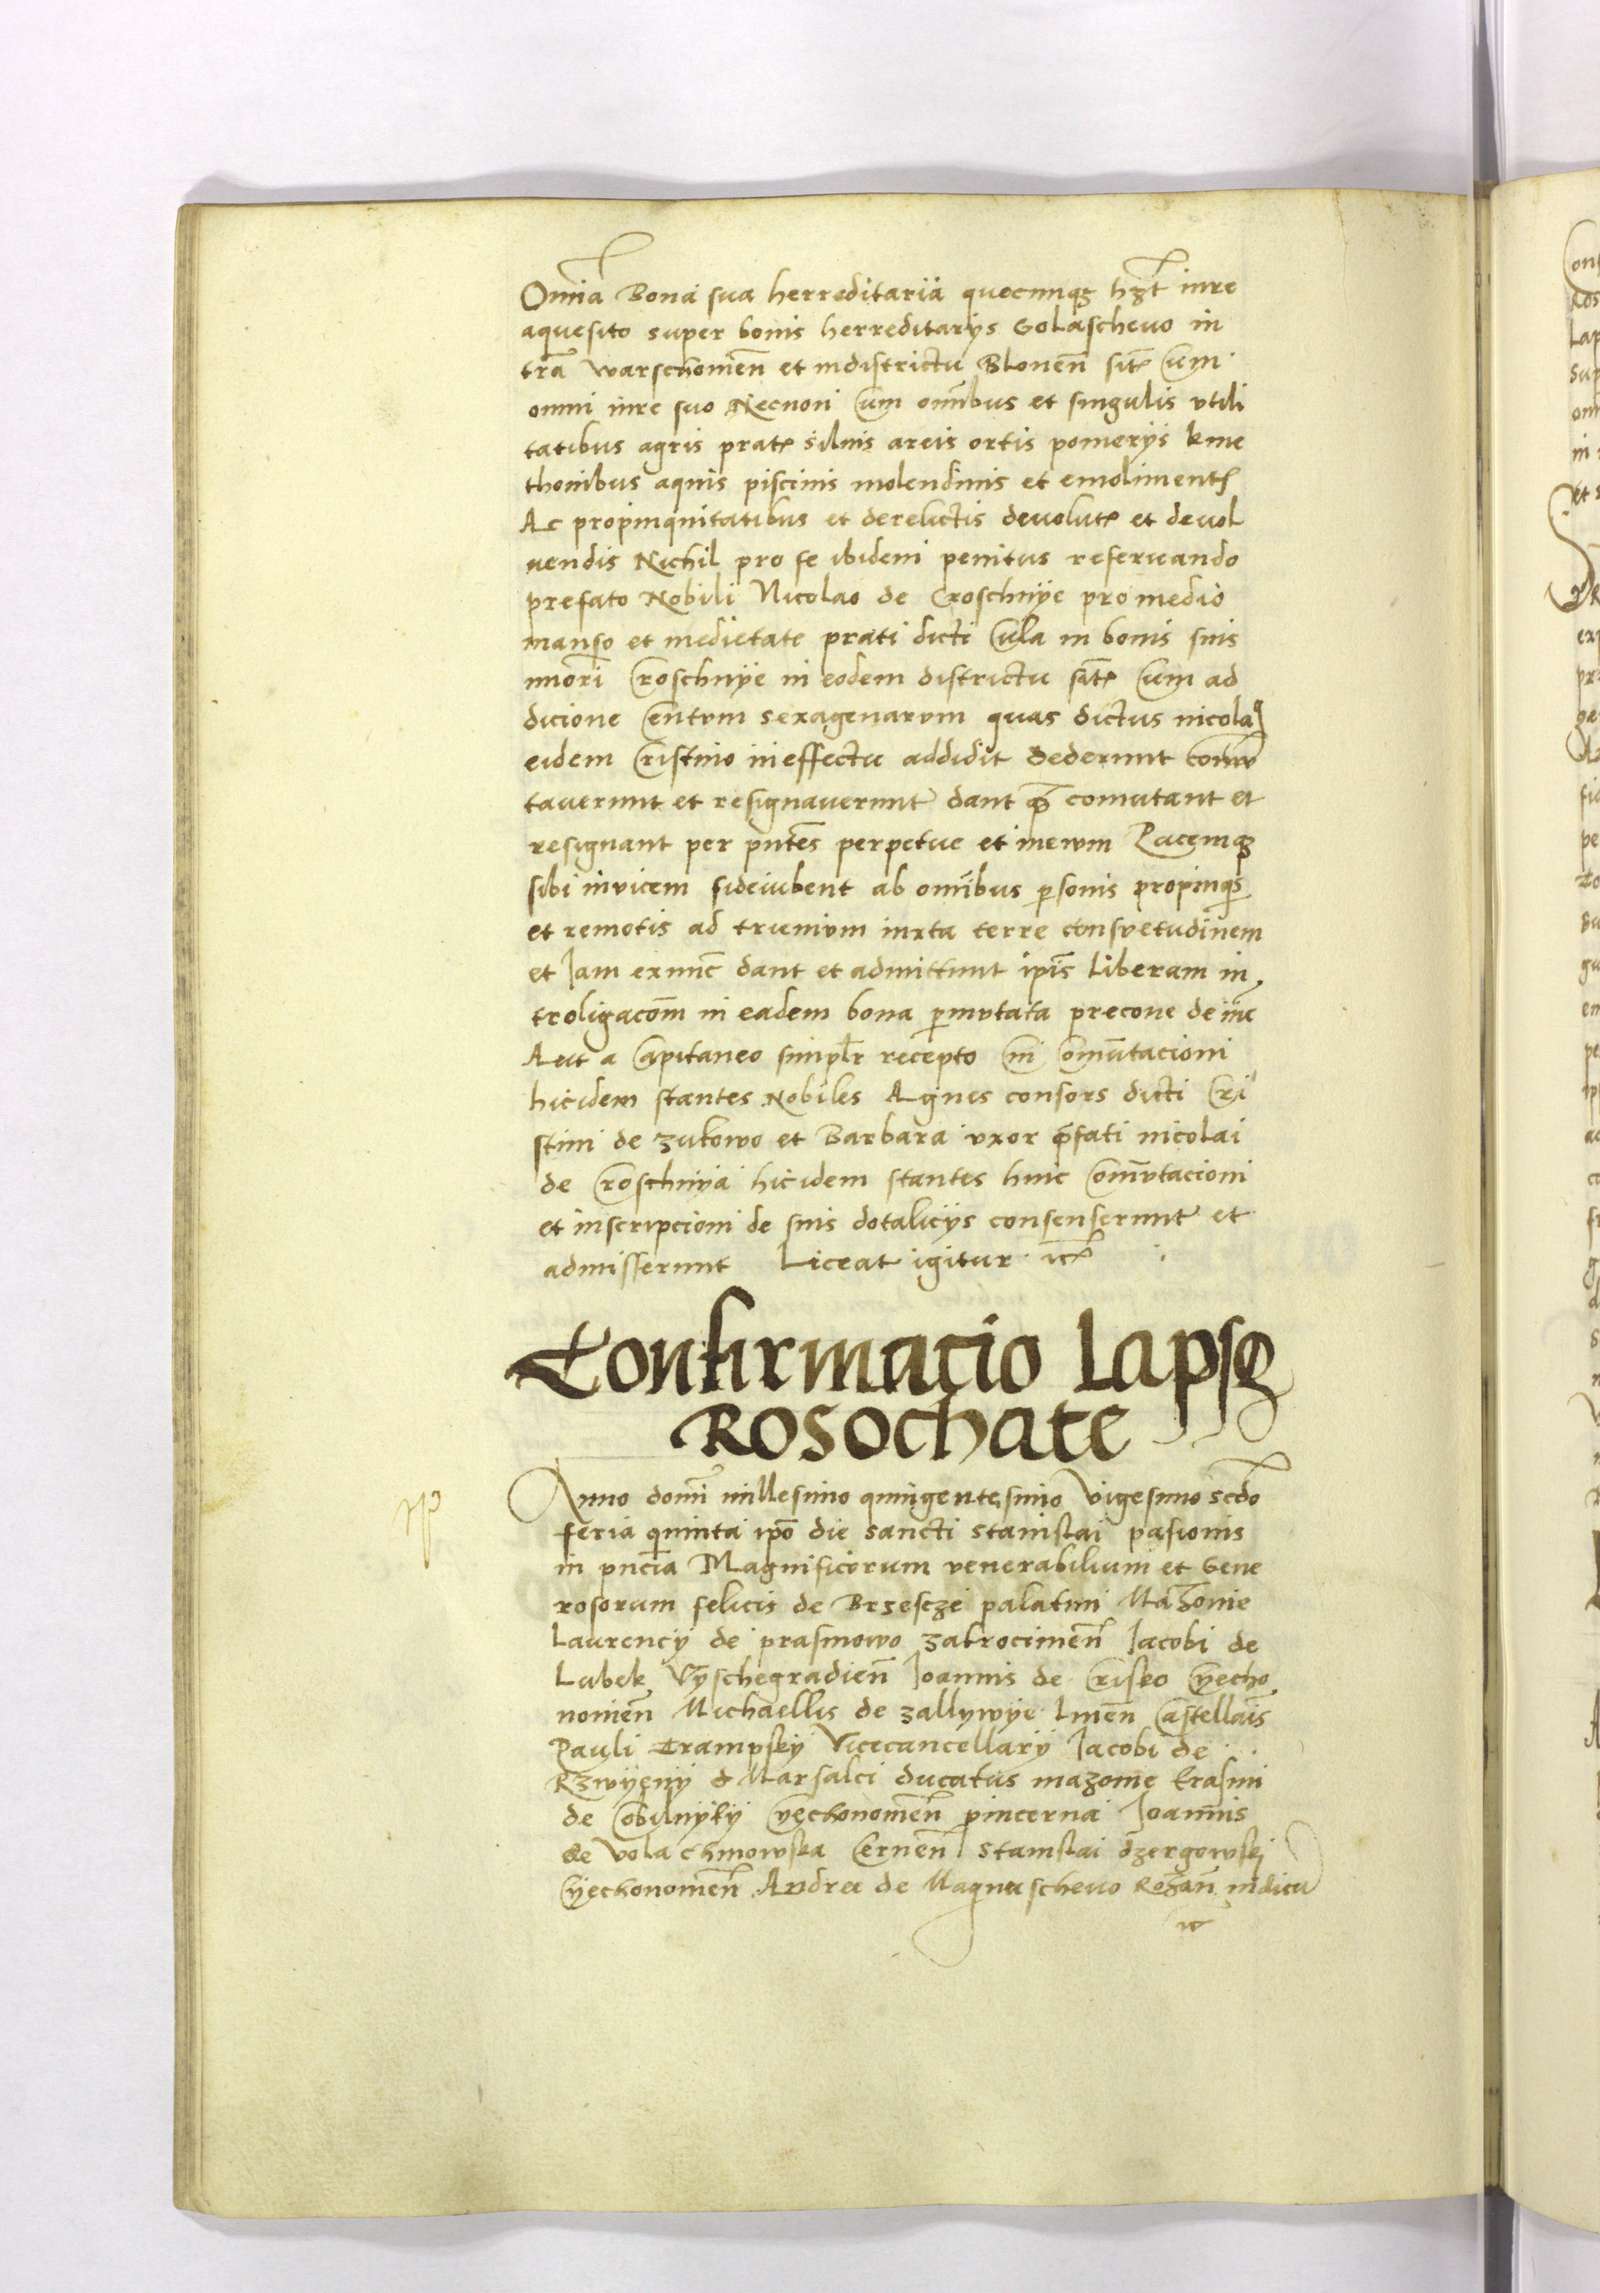 Omnia Bona sua herreditaria quecunqz hzt iure
aquesito super bonis herreditarijs Golaschewo in
tra Warschouien et in districtu Blonen sit Cum
omni iure suo Necnon Cum omnibus et singulis vtili
tatibus agris prat siluis areis ortis pomerijs kme
thonibus aquis piscinis molendinis et emoliment
Ac propinquitatibus et derelictis deuolut et deuol
uendis Nichil pro se ibidem penitus reseruando
prefato Nobili Nicolao de Croschnye pro medio
manso et medietate prati dicti Cula in bonis suis
Croschnye in eodem districtu sit Cum ad
dicione Centum sexagenarum quas dictus nicola9
eidem Cristino in effectu addidit Dederunt comu
tauerunt et resignauerunt dant q comutant et
resignant per pntes perpetue et in ewm Pacemqz
sibi invicem fideiubent ab omibus psonis propinqs
et remotis ad trienium iuxta terre consvetudinem
et Jam exnunc dant et admittunt ipis Liberam in
troligacom in eadem bona pmvtata precone de
Aut a Capitaneo simplr recepto Cui Comutacioni
hicidem stantes Nobiles Agnes consors dicti Cri
stini de zukowo et Barbara vxor pfati nicolai
de Croschnya hicidem stantes huic Comvtacioni
et inscripcioni de suis dotalicijs consenserunt et
admisserunt Liceat igitur etc
Confirmacio Lapsz
Rosochate
Anno domi millesimo quingentesimo Vigesimo scdo
feria quinta ipo die sancti stanislai pasionis
in pncia Magnificorum venerabilium et Gene
rosorum felicis de Brzescze palatini Mazouie
Laurencij de prasmowo zakrocimen Jacobi de
Lubek Vyschegradien Joannis de Crisko Cyecho
nouien Michaellis de zallywye Liuen Castellais
Pauli Crampsky Vicecancellarij Jacobi de
Rzwyeny Marsalci ducatus mazouie Erasmi
de Cobilnyky Cyechonomen pincerna Joannis
de Vola chinowska Cernen stanislai dzergowskj
Cyechonomen Andree de Magnuschewo Rozan iudicu
etc